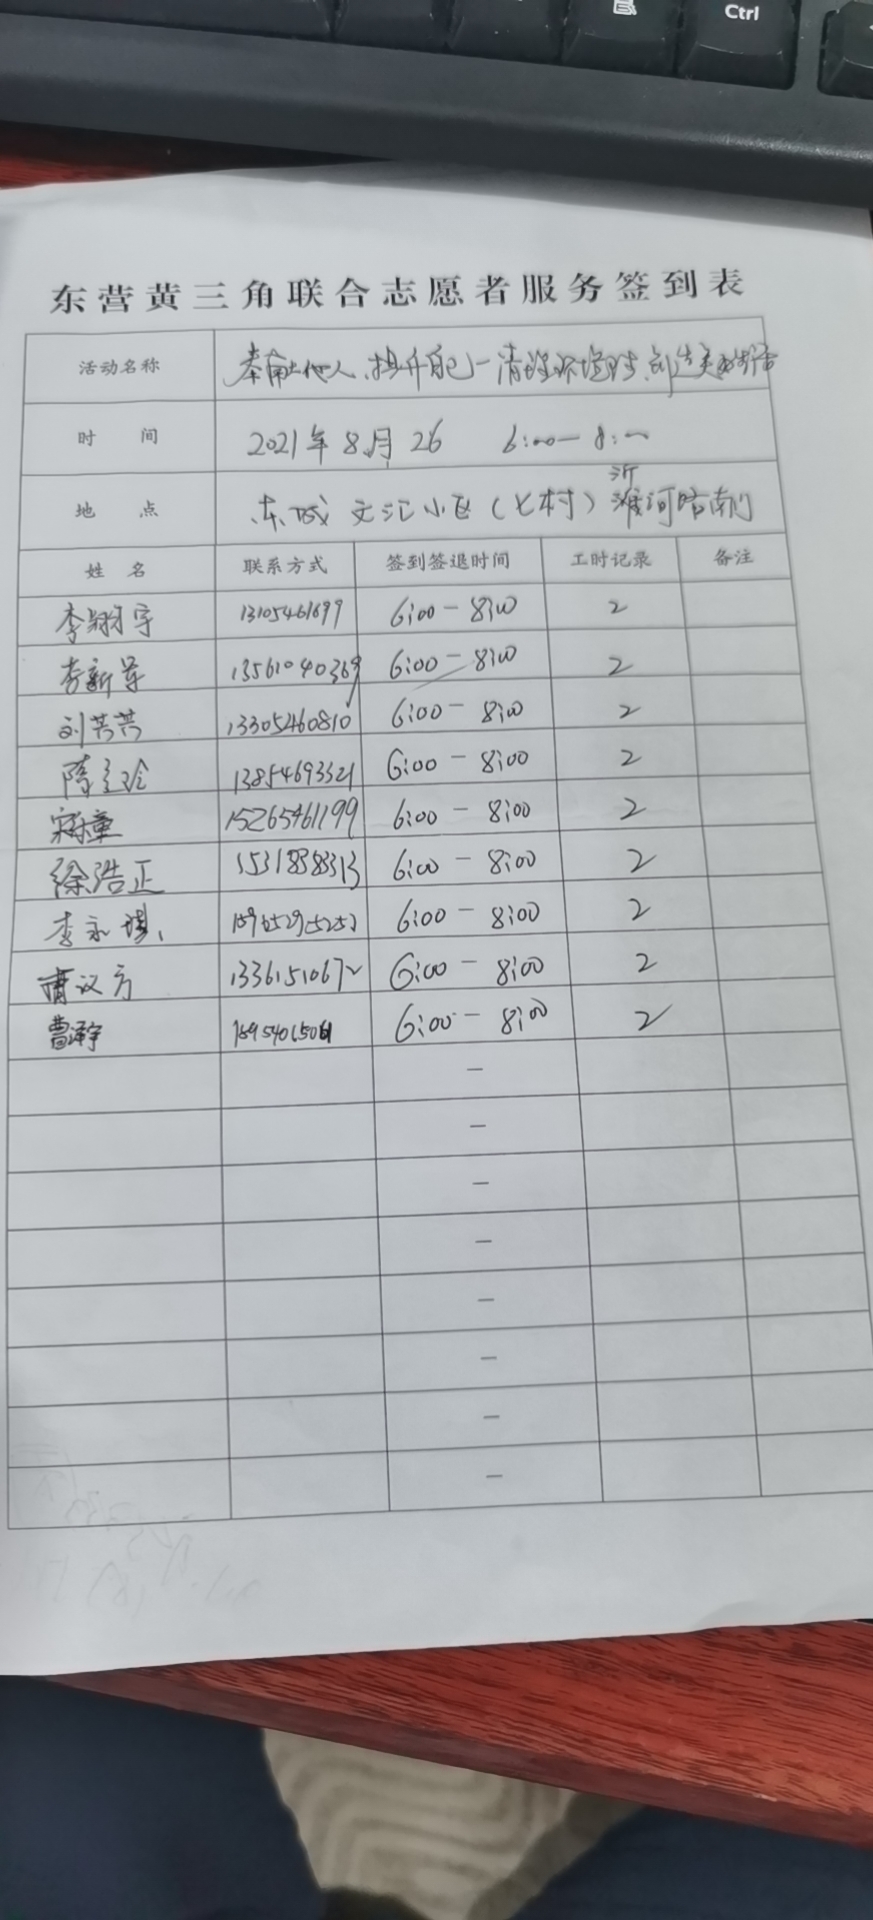 Ctrl
东营黄三角联合志愿者服务签到表
活动名称 奉献他人、提升自己—清理环境、创造美好生活
时 间 2021年8月26 6:00—8:00
地 点 东城文汇小区(七村)沂河路南门
姓 名 联系方式 签到签退时间 工时记录 备注
李翔宇 13105461699 6:00-8:00 2
李新军 13561040369 6:00-8:00 2
刘芳芳 13305460810 6:00-8:00 2
隋立玲 13854693321 6:00-8:00 2
15265461199 6:00-8:00 2
徐浩正 15318383313 6:00-8:00 2
李永琪 6:00-8:00 2
议方 13361510672 6:00-8:00 2
曹泽宇 6:00-8:00 2
—
—
—
—
—
—
—
—